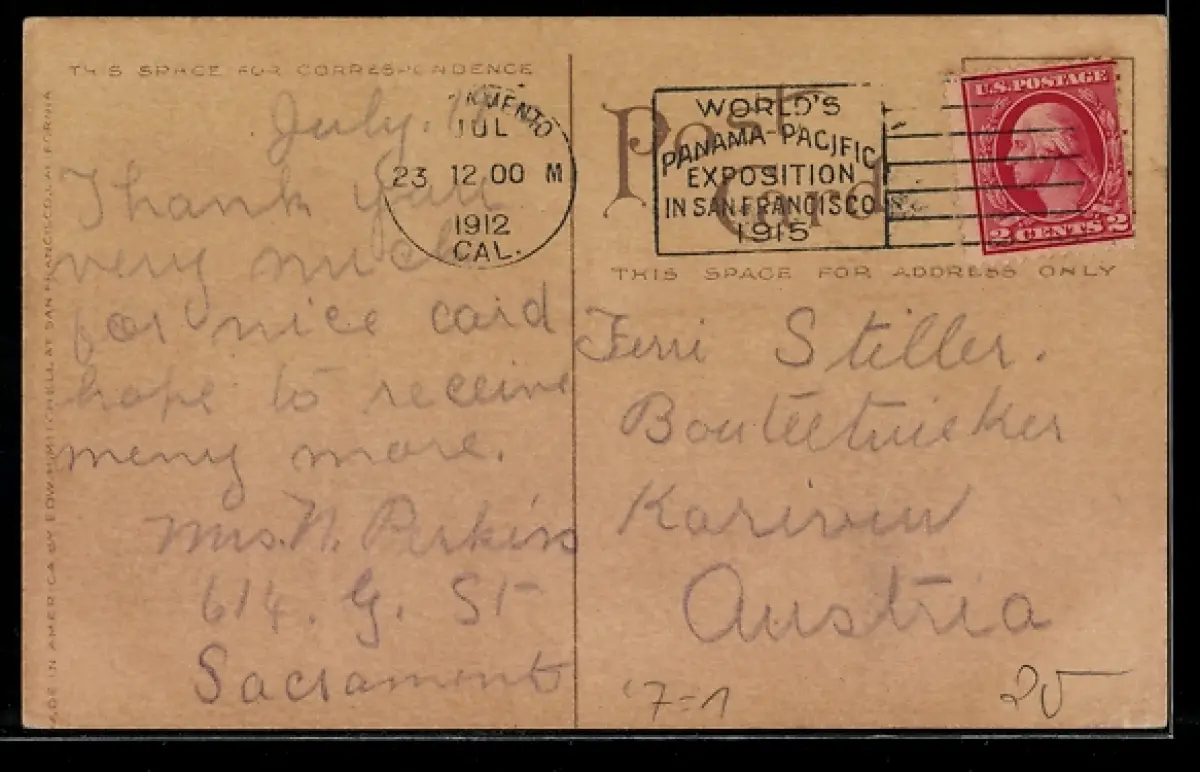 THIS SPACE FOR CORRESPONDENCE
July. 19
Thank you
very much
for nice card
hope to receive
meny more.
Mrs. N. Perkins
614. G. St
Sacramento
MADE IN AMERICA BY EDW. H. MITCHELL AT SAN FRANCISCO, CALIFORNIA
JUL
23 12.00 M
1912
CAL.
Post
Card
WORLD'S
PANAMA-PACIFIC
EXPOSITION
IN SAN FRANCISCO
1915
U.S. POSTAGE
2 CENTS 2
THIS SPACE FOR ADDRESS ONLY
Stiller.
Austria
7=1